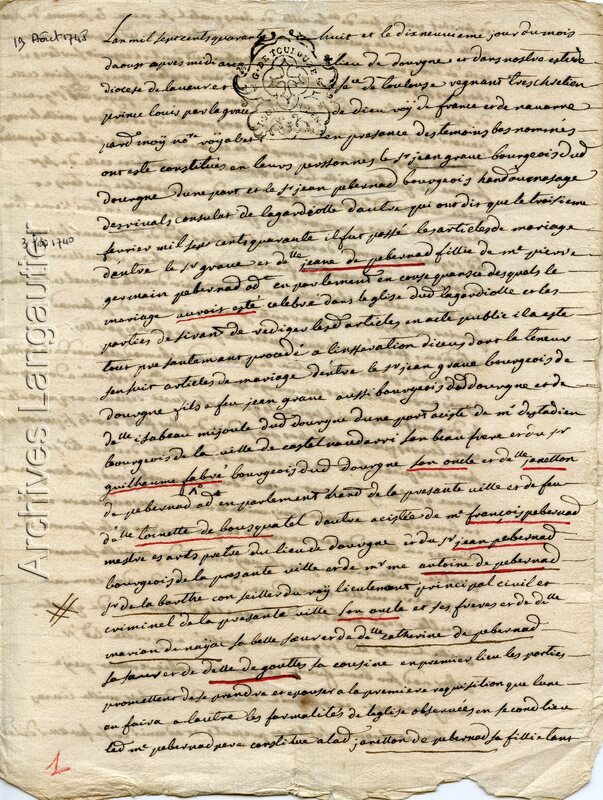 19 Aout 1748
Lan mil sept cents quarante huit et le dixneuvieme jour du mois
daoust apres midi au lieu de dourgne et dans nostre estude
diocese de lavaur et de toulouse regnant tres chretien
G. DE TOULOUSE
prince louis par la grace de dieu roy de france et de navarre
pard moy no.re royal en presance des temoins bas nommés
ont esté constitués en leurs personnes le sr jean grave bourgeois dud
dourgne dune part et le sr jean pebernad bourgeois hand au masage
des rivals consulat de lagardiolle dautre qui ont dit que le troisieme
3 fev 1740
fevrier mil sept cents quarante il fut passé les articles de mariage
dautre le sr grave et dlle jeane de pebernad fillie de me pierre
germain pebernad adt en parlement en conse quance desquels le
mariage auroit esté celebré dans leglise dud lagardiolle et les
parties de rediger lesd articles en acte public il a esté
tout presentement procedé a linsertion diceux dont la teneur
sensuit articles de mariage dentre le sr jean grave bourgeois de
dourgne fils a feu jean grave aussi bourgeois dud dourgne et de
dlle isabeau mijoule dud dourgne dune part acisté de mr destadieu
bourgeois de la ville de castelnaudarri son beau frere et du sr
guilhaume fabré bourgeois dud dourgne son oncle et dlle janetton
de pebernad adt en parlement hand de la presante ville et de feu
dlle toinette de bousquatel dautre acistée de me françois pebernad
mestre es arts pretre du lieu de dourgne et du sr jean pebernad
bourgeois de la presante ville et de mr me antoine de pebernad
sr de la barthe conseiller du roy lieutenant principal civil et
criminel de la presante ville son oncle et ses freres et de dlle
marian de najac sa belle soeur et de dlle catherine de pebernad
sa soeur et de delle de gouttes sa cousine en premier lieu les parties
promettent de se prendre et epouser a la premiere requisition que lune
en faira a lautre les formalités de leglise observées en second lieu
led me pebernad pere constitue a lad janetton de pebernad sa fillie tant
1
Archives Langautier